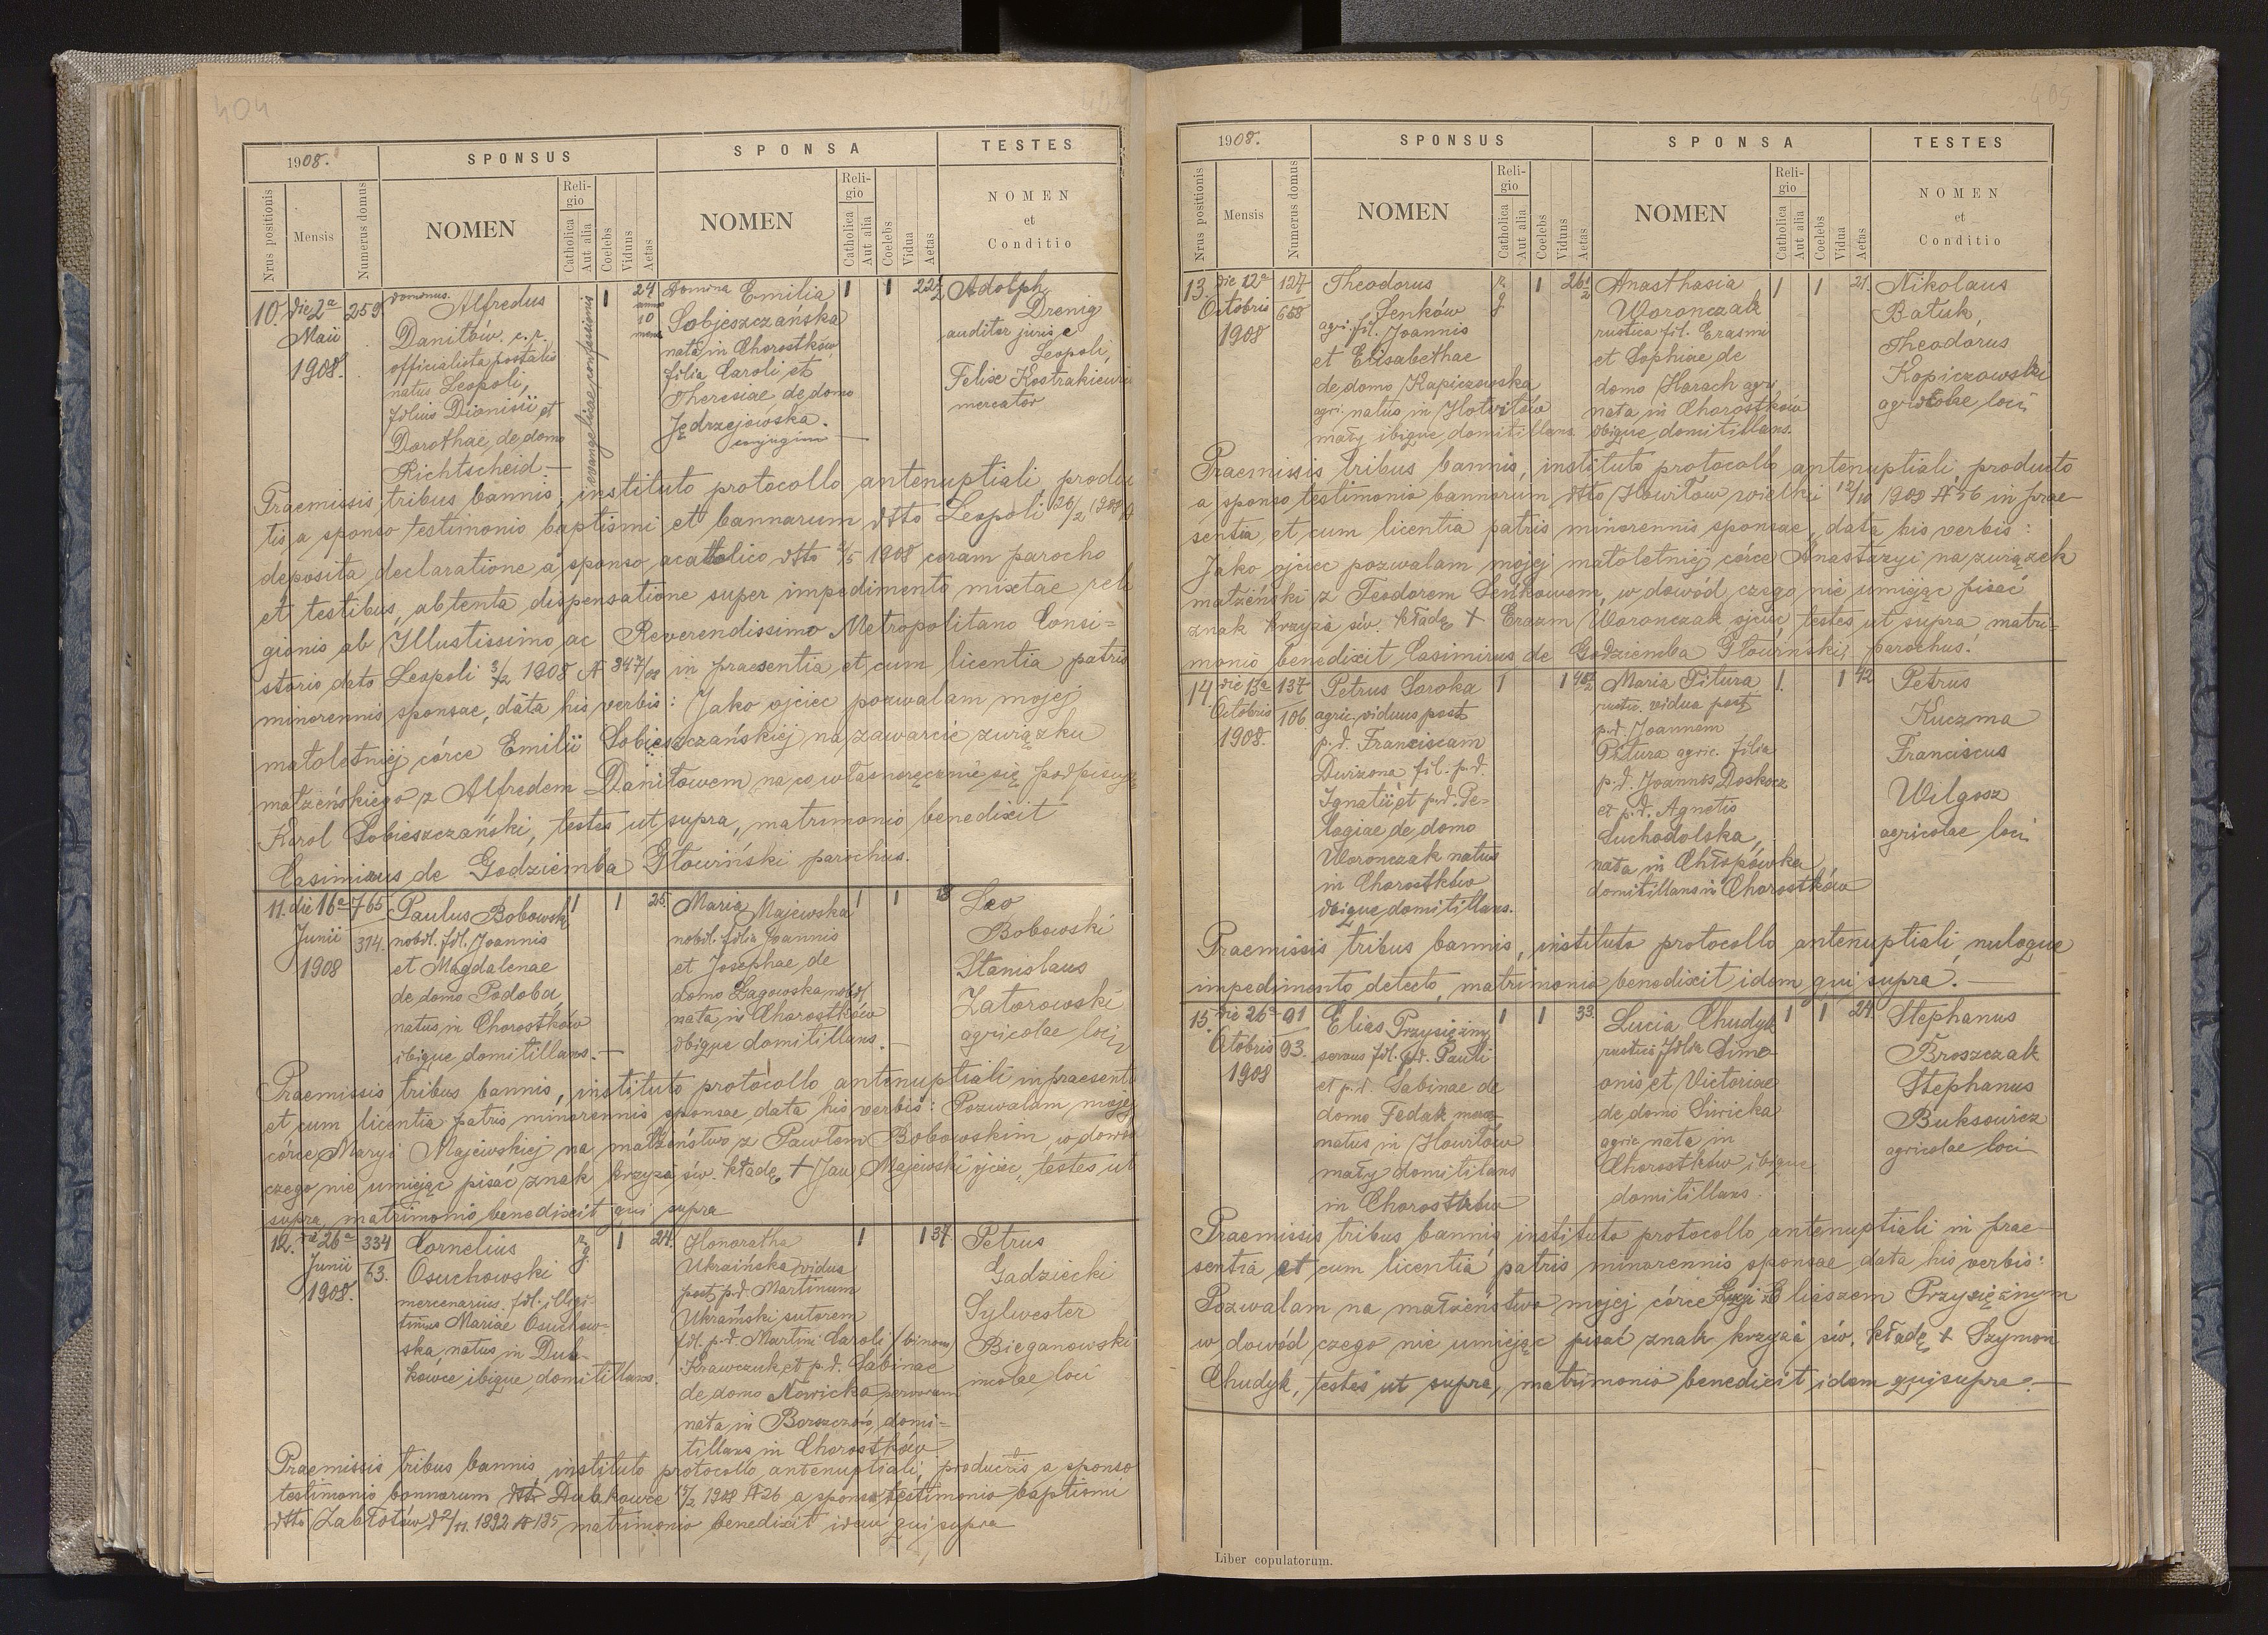 404
1908.
SPONSUS
SPONSA
TESTES
Nrus positionis
Mensis
Numerus domus
NOMEN
Religio
Catholica
Aut alia
Coelebs
Viduus
Aetas
NOMEN
Religio
Catholica
Aut alia
Coelebs
Vidua
Aetas
NOMEN
et
Conditio
10.
die 2a
Maii
1908.
259
dominus. Alfredus
Daniłów. c. r.
officialista postalis
natus Leopoli,
filius Dionisii et
Dorothae, de domo
Richtscheid —
evangelicae confessionis
1
24
annor
10
mens
Domina Emilia
Sobieszczańska
nata in Chorostków
filia Caroli et
Theresiae de domo
Jędrzejowska.
conjugum —
1
1
22 1/2
Adolph
Drenig
auditor juris e
Leopoli,
Felix Kostrakiewicz
mercator
Praemissis tribus bannis, instituto protocollo antenuptiali produc
tis a sponso testimonio baptismi et bannorum dtto Leopoli 26/2 1908
deposita declaratione a sponso acattolico dtto 2/5 1908 coram parocho
et testibus, obtenta dispensatione super impedimento mixtae reli
gionis ab Illustissimo ac Reverendissimo Metropolitano Consi=
storio dato Leopoli 3/2 1908 N 347/08 in praesentia et cum licentia patris
minorennis sponsae, data his verbis: Jako ojciec pozwalam mojej
małoletniej córce Emilii Sobieszczańskiej na zawarcie związku
małżeńskiego z Alfredem Daniłowem na co własnoręcznie się podpisuję
Karol Sobieszczański, testes ut supra, matrimonio benedixit
Casimirus de Godziemba Głowiński parochus.
11.
die 16a
Junii
1908
765
374.
Paulus Bobowski
nobil. fil. Joannis
et Magdalenae
de domo Podoba
natus in Chorostków
ibique domitillans. —
1
1
25.
Maria Majewska
nobil. filia Joannis
et Josephae de
domo Zagowska nobil
nata in Chorostków
ibique domitillans. —
1
1
18
Leo
Bobowski
Stanislaus
Zatorowski
agricolae loci
Praemissis tribus bannis, instituto protocollo antenuptiali in praesentia
et cum licentia patris minorennis sponsae data his verbis: Pozwalam mojej
córce Maryi Majewskiej na małżeństwo z Pawłem Bobowskim, w dowód
czego nie umiejąc pisać znak krzyża św. kładę + Jan Majewski ojciec, testes ut
supra matrimonio benedixit qui supra
12.
die 26a
Junii
1908.
334
63.
Cornelius
Osuchowski
mercenarius. fil. illegi-
timus Mariae Osuchow-
ska natus in Dub-
kowce ibique domitillans.
r.
g.
1
24.
Honoratha
Ukraińska vidua
post p.d. Martinum
Ukraiński sutorem
fil. p.d. Martini Caroli (binom)
Krawczuk et p.d. Sabinae
de domo Nowicka
nata in Borszczów, domi=
tillans in Chorostków
1
1
37.
Petrus
Gadziecki
Sylwester
Bieganowski
incolae loci
Praemissis tribus bannis, instituto protocollo antenuptiali, productis a sponso
testimonio bannorum dtto Dubkowce 1908 N 26 a sponsa testimonio baptismi
dtto Zabłotów 1892 N 185 matrimonio benedixit idem qui supra
405
1908.
SPONSUS
SPONSA
TESTES
Nrus positionis
Mensis
Numerus domus
NOMEN
Religio
Catholica
Aut alia
Coelebs
Viduus
Aetas
NOMEN
Religio
Catholica
Aut alia
Coelebs
Vidua
Aetas
NOMEN
et
Conditio
13.
die 12a
Octobris
1908
127
658
Theodorus
Senków
agri. fil. Joannis
et Elisabethae
de domo Kapiczowska
agri. natus in
mały ibique domitillans.
r.
g.
1
26 1/2
Anasthasia
Woronczak
rustica fil. Erasmi
et Sophiae de
domo Harach agri
nata in Chorostków
ibique domitillans.
1
1
21.
Nikolaus
Batuk,
Theodorus
Kopiczowski
agricolae loci
Praemissis tribus bannis, instituto protocollo antenuptiali, producto
a sponso testimonio bannorum dtto Howiłów wielki 12/10 1908 N 56 in prae-
sentia, et cum licentia patris minorennis sponsae, data his verbis:
Jako ojciec pozwalam mojej małoletniej córce Anastazyi na związek
małżeński z Teodorem Senkowem, w dowód czego nie umiejąc pisać
znak krzyża św. kładę + Erazm Woronczak ojciec, testes ut supra matri-
monio benedixit Casimirus de Godziemba Głowiński parochus.
14.
die 13a
Octobris
1908.
137
106
Petrus Soroka
agric. viduus post
p.d. Franciscam
Duvizona fil. p.d.
Ignatii et p.d. Pe-
lagiae de domo
Woronczak natus
in Chorostków
ibique domitillans.
1
1
40 1/2
Maria Pitura
rustic. vidua post
p.d. Joannem
Pitura agric. filia
p.d. Joannis Doskocz
et p.d. Agnetis
Suchodolska,
nata in Chłopówka
domitillans in Chorostków
1.
1
42
Petrus
Kuczma
Franciscus
Wilgosz
agricolae loci
Praemissis tribus bannis, instituto protocollo antenuptiali, nuloque
impedimento detecto, matrimonio benedixit idem qui supra. —
15.
die 26a
Octobris
1908
91
93.
Elias Przysiężny
servus fil. p.d. Pauli
et p.d. Sabinae de
domo Fedak merce
natus in Howiłów
mały domitilans
in Chorostków
1
1
33.
Lucia Chudyk
rustica filia Sime-
onis et Victoriae
de domo Siwicka
agric nata in
Chorostków ibique
domitillans.
1
1
24.
Stephanus
Broszczak
Stephanus
Buksowicz
agricolae loci
Praemissis tribus bannis instituto protocollo antenuptiali in prae-
sentia et cum licentia patris minorennis sponsae data his verbis:
Pozwalam na małżeństwo mojej córce Łucyi z Eliaszem Przysiężnym
w dowód czego nie umiejąc pisać znak krzyża św. kładę + Szymon
Chudyk, testes ut supra, matrimonio benedixit idem qui supra. —
Liber copulatorum.